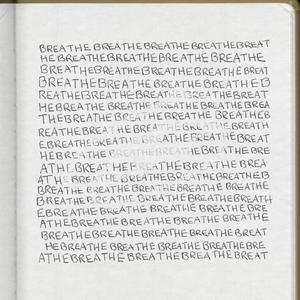 BREATHE BREATHEBREATHEBREATHEBREAT
HE BREATHEBREATHE BREATHE BREATHE
BREATHEBREATHEBREATHEBREATHE BREAT
BREATHEBREATHE BREATHE BREATHE B
REATHEBREATHE BREATHE BREATHEBREAT
HE BREATHE BREATHE BREATHE BREA
THEBREATHE BREATHE BREATHE BREATHEB
REATHE BREATHE BREATHE BREATH
E BREATHE BREATHE BREATHE BREAT
HE BREATHE BREATHE BREATHE BRE
ATHE BREATHE BREATHE BREATHE BREA
THE BREATHE BREATHE BREATHE B
BREATHE BREATHE BREATHE BREATHE
BREATHE BREATHE BREATHE BREATHE BREATH
E BREATHE BREATHE BREATHE BREATHE BRE
ATHE BREATHE BREATHE BREATHE BREATHE
BREATHE BREATHE BREATHE BREATHE BREAT
HE BREATHE BREATHE BREATHE BRE
ATHE BREATHE BREATHE BREATHE BREAT